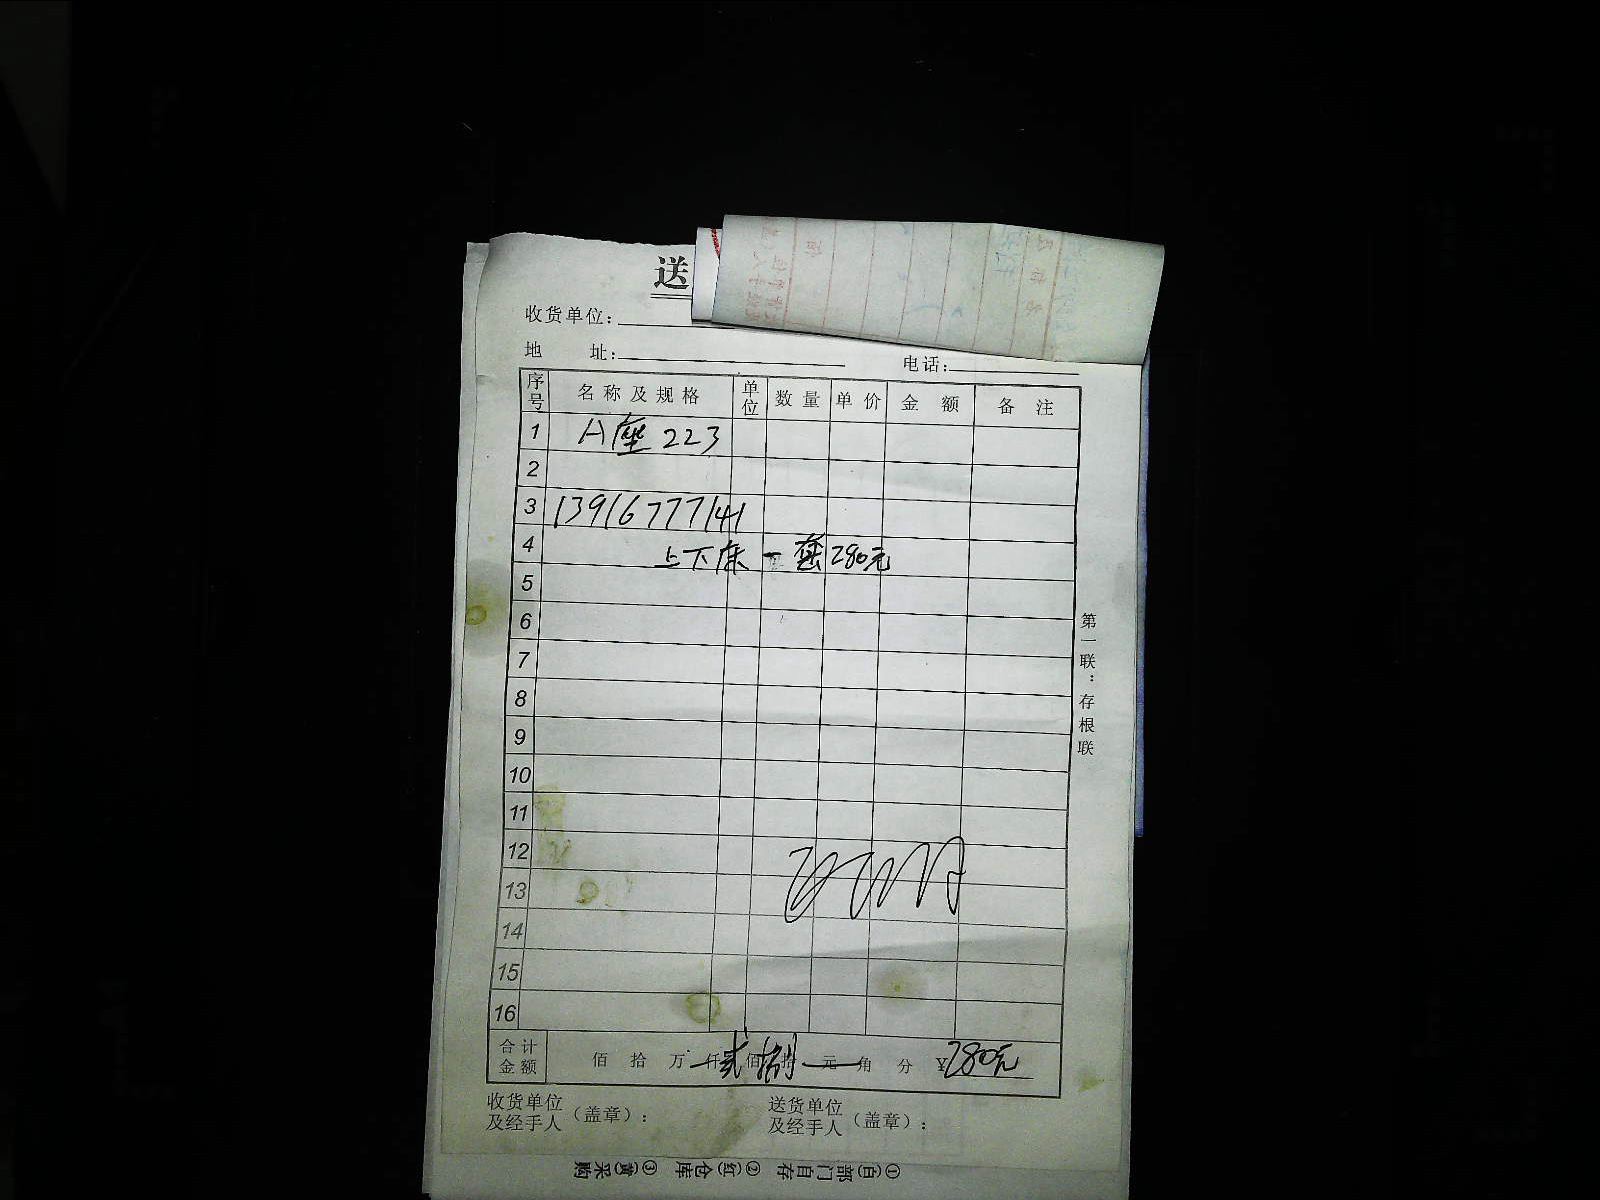 送
收货单位：
地 址： 电话：
序号 名称及规格 单位 数量 单价 金额 备注
1 A座223
2
3 13916777141
4 上下床一套280元
5
6
7
8
9
10
11
12
13
14
15
16
合计金额 佰拾万仟贰佰捌拾元角分 ¥280元
收货单位及经手人（盖章）： 送货单位及经手人（盖章）：
第一联：存根联
①(白)部门自存 ②(红)仓库 ③(黄)采购